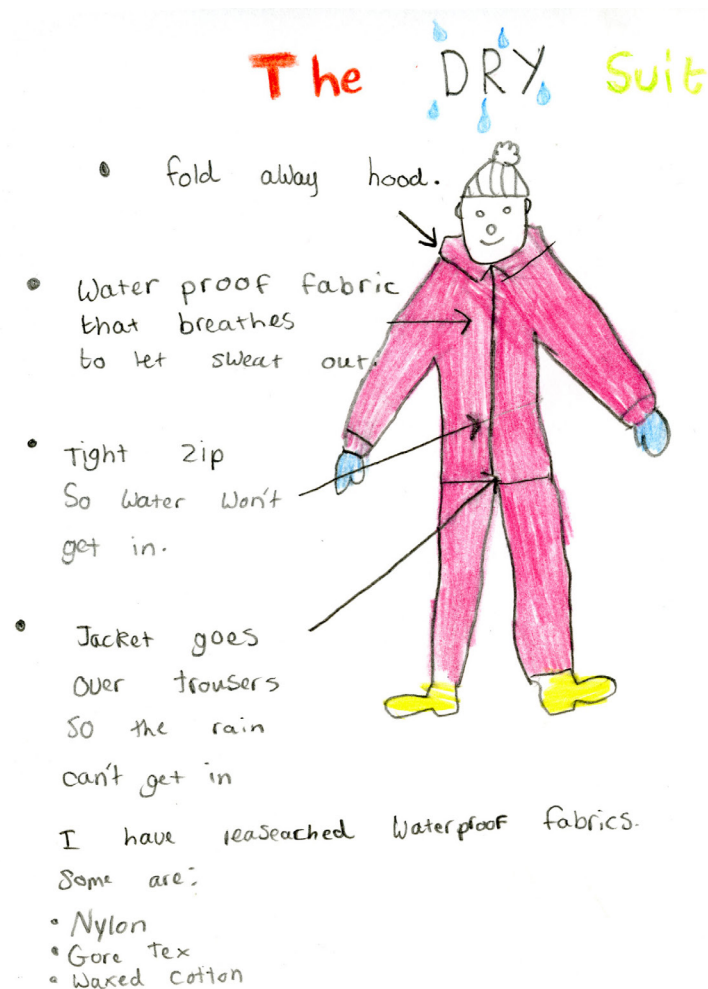 The DRY Suit
• fold away hood.
• Water proof fabric
that breathes
to let sweat out.
• Tight zip
So water won't
get in.
• Jacket goes
over trousers
So the rain
can't get in
I have reaseached Waterproof fabrics.
Some are:
• Nylon
• Gore Tex
• Waxed Cotton